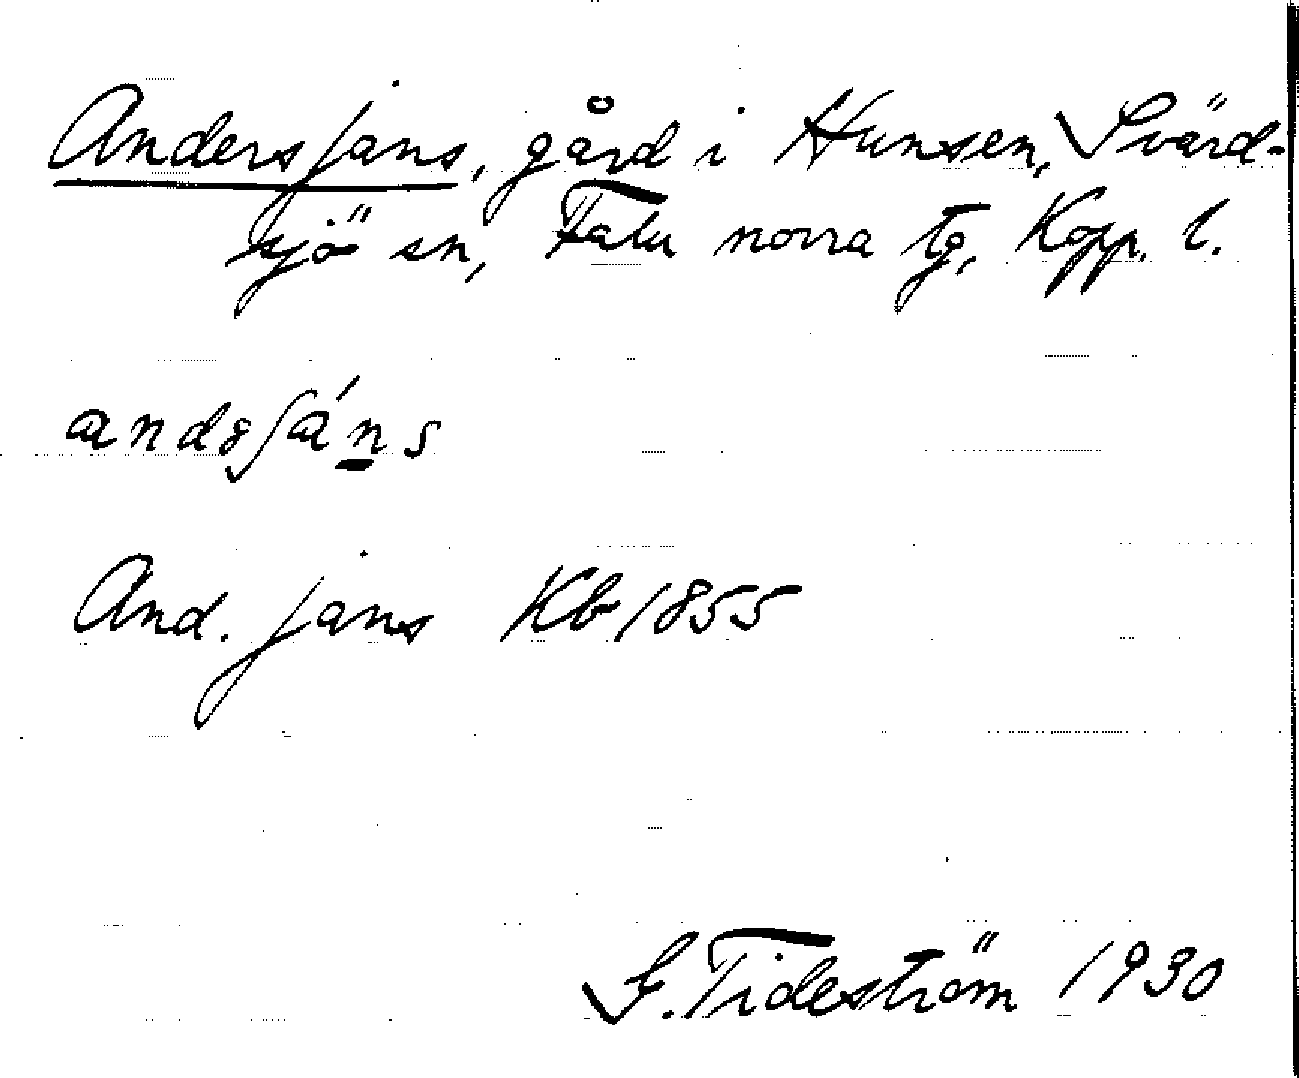 Andersjans, gård i Hunsen, Svärd-
sjö sn, Falu norra tg, Kopp. l.
And. jans Kb 1855
G. Tideström 1930